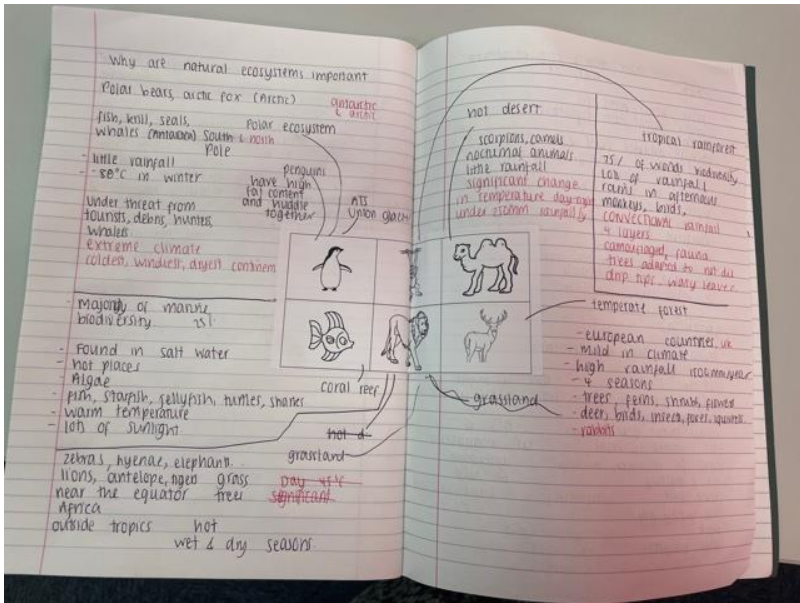 Why are natural ecosystems important
Polar bears, arctic fox (Arctic)
antarctic
& arctic
fish, krill, seals,
whales (Antarctica) South & north
Pole
Polar ecosystem
- little rainfall
- -80°C in winter
penguins
have high
fat content
and huddle
together
Under threat from
tourists, debris, hunters,
whalers
extreme climate
coldest, windiest, dryest continent
- Majority of marine
biodiversity 25%
- Found in salt water
- hot places
Algae
- fish, starfish, jellyfish, turtles, sharks
- warm temperature
- lots of sunlight
coral reef
hot d
grassland
zebras, hyenae, elephants
lions, antelope, tigers grass
near the equator trees
Africa
outside tropics hot
wet & dry seasons
Day 45°C
significant
hot desert
scorpions, camels
nocturnal animals
little rainfall
significant change
in temperature day-night
under 250mm rainfall/y
tropical rainforest
75% of worlds biodiversity
lots of rainfall
rains in afternoons
monkeys, birds,
convectional rainfall
4 layers
camouflaged, fauna
trees adapted to not die
drip tips, waxy leaves
temperate forest
- european countries, UK
- mild in climate
- high rainfall 1500mm/year
- 4 seasons
- trees, ferns, shrubs, flowers
- deer, birds, insects, foxes, squirrels
- rabbits
grassland